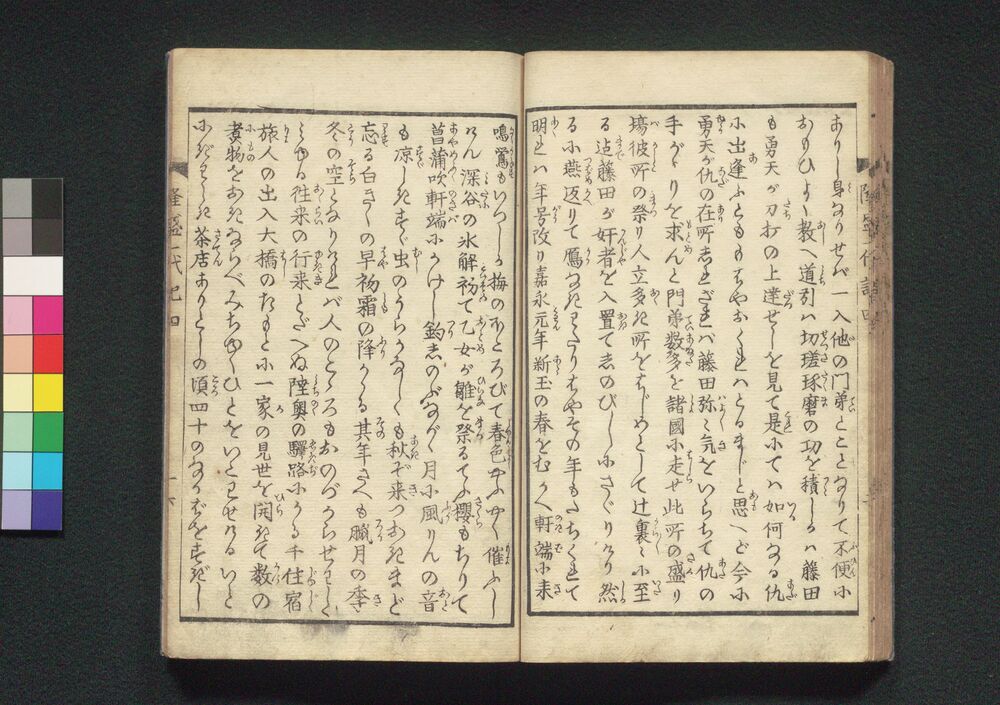 ありし身なりせば一入他の門弟とことなりて不便に
おもひよく教へ道引ハ切瑳琢磨の功を積しるハ藤田
も勇天が刀打の上達せしを見て是にてハ如何なる仇
に出逢ふとももはやおくれハとるまじと思へど今に
勇天が仇の在所志れざれバ藤田弥々気をいらちて仇の
手がゝりを求んと門弟数多を諸國に走せ此所の盛り
場彼所の祭り人立多き所をはじめとして辻裏々に至
る迠藤田が奸者を入置て志のびしにさぐりけり然
る小燕返りて鳫なきわたりはやその年もたちくれて
明れハ年号改り嘉永元年新玉の春をむかへ軒端に来
鳴鴬もいつしか梅のほころびて春色やふやく催ふし
けん深谷の氷解初て乙女が雛を祭るてふ櫻もちりて
菖蒲吹軒端にかけし釣志のぶながく月に風りんの音
も凉しきすゞ虫のうらかなしくも秋ぞ来つあきまど
忘る白きくの早初霜の降かゝる其年さへも臓月の季
冬の空となりけれバ人のこゝろもおのづからせわしく
とゆる往来の行来とだへぬ陸奥の驛路にかゝる千住宿
旅人の出入大橋のたもとに一家の見世を開きて数の
煮物をあきならべみちゆくひとをいこわせける いと
にぎわしき 茶店ありとしの頃四十のなかばをすぎし